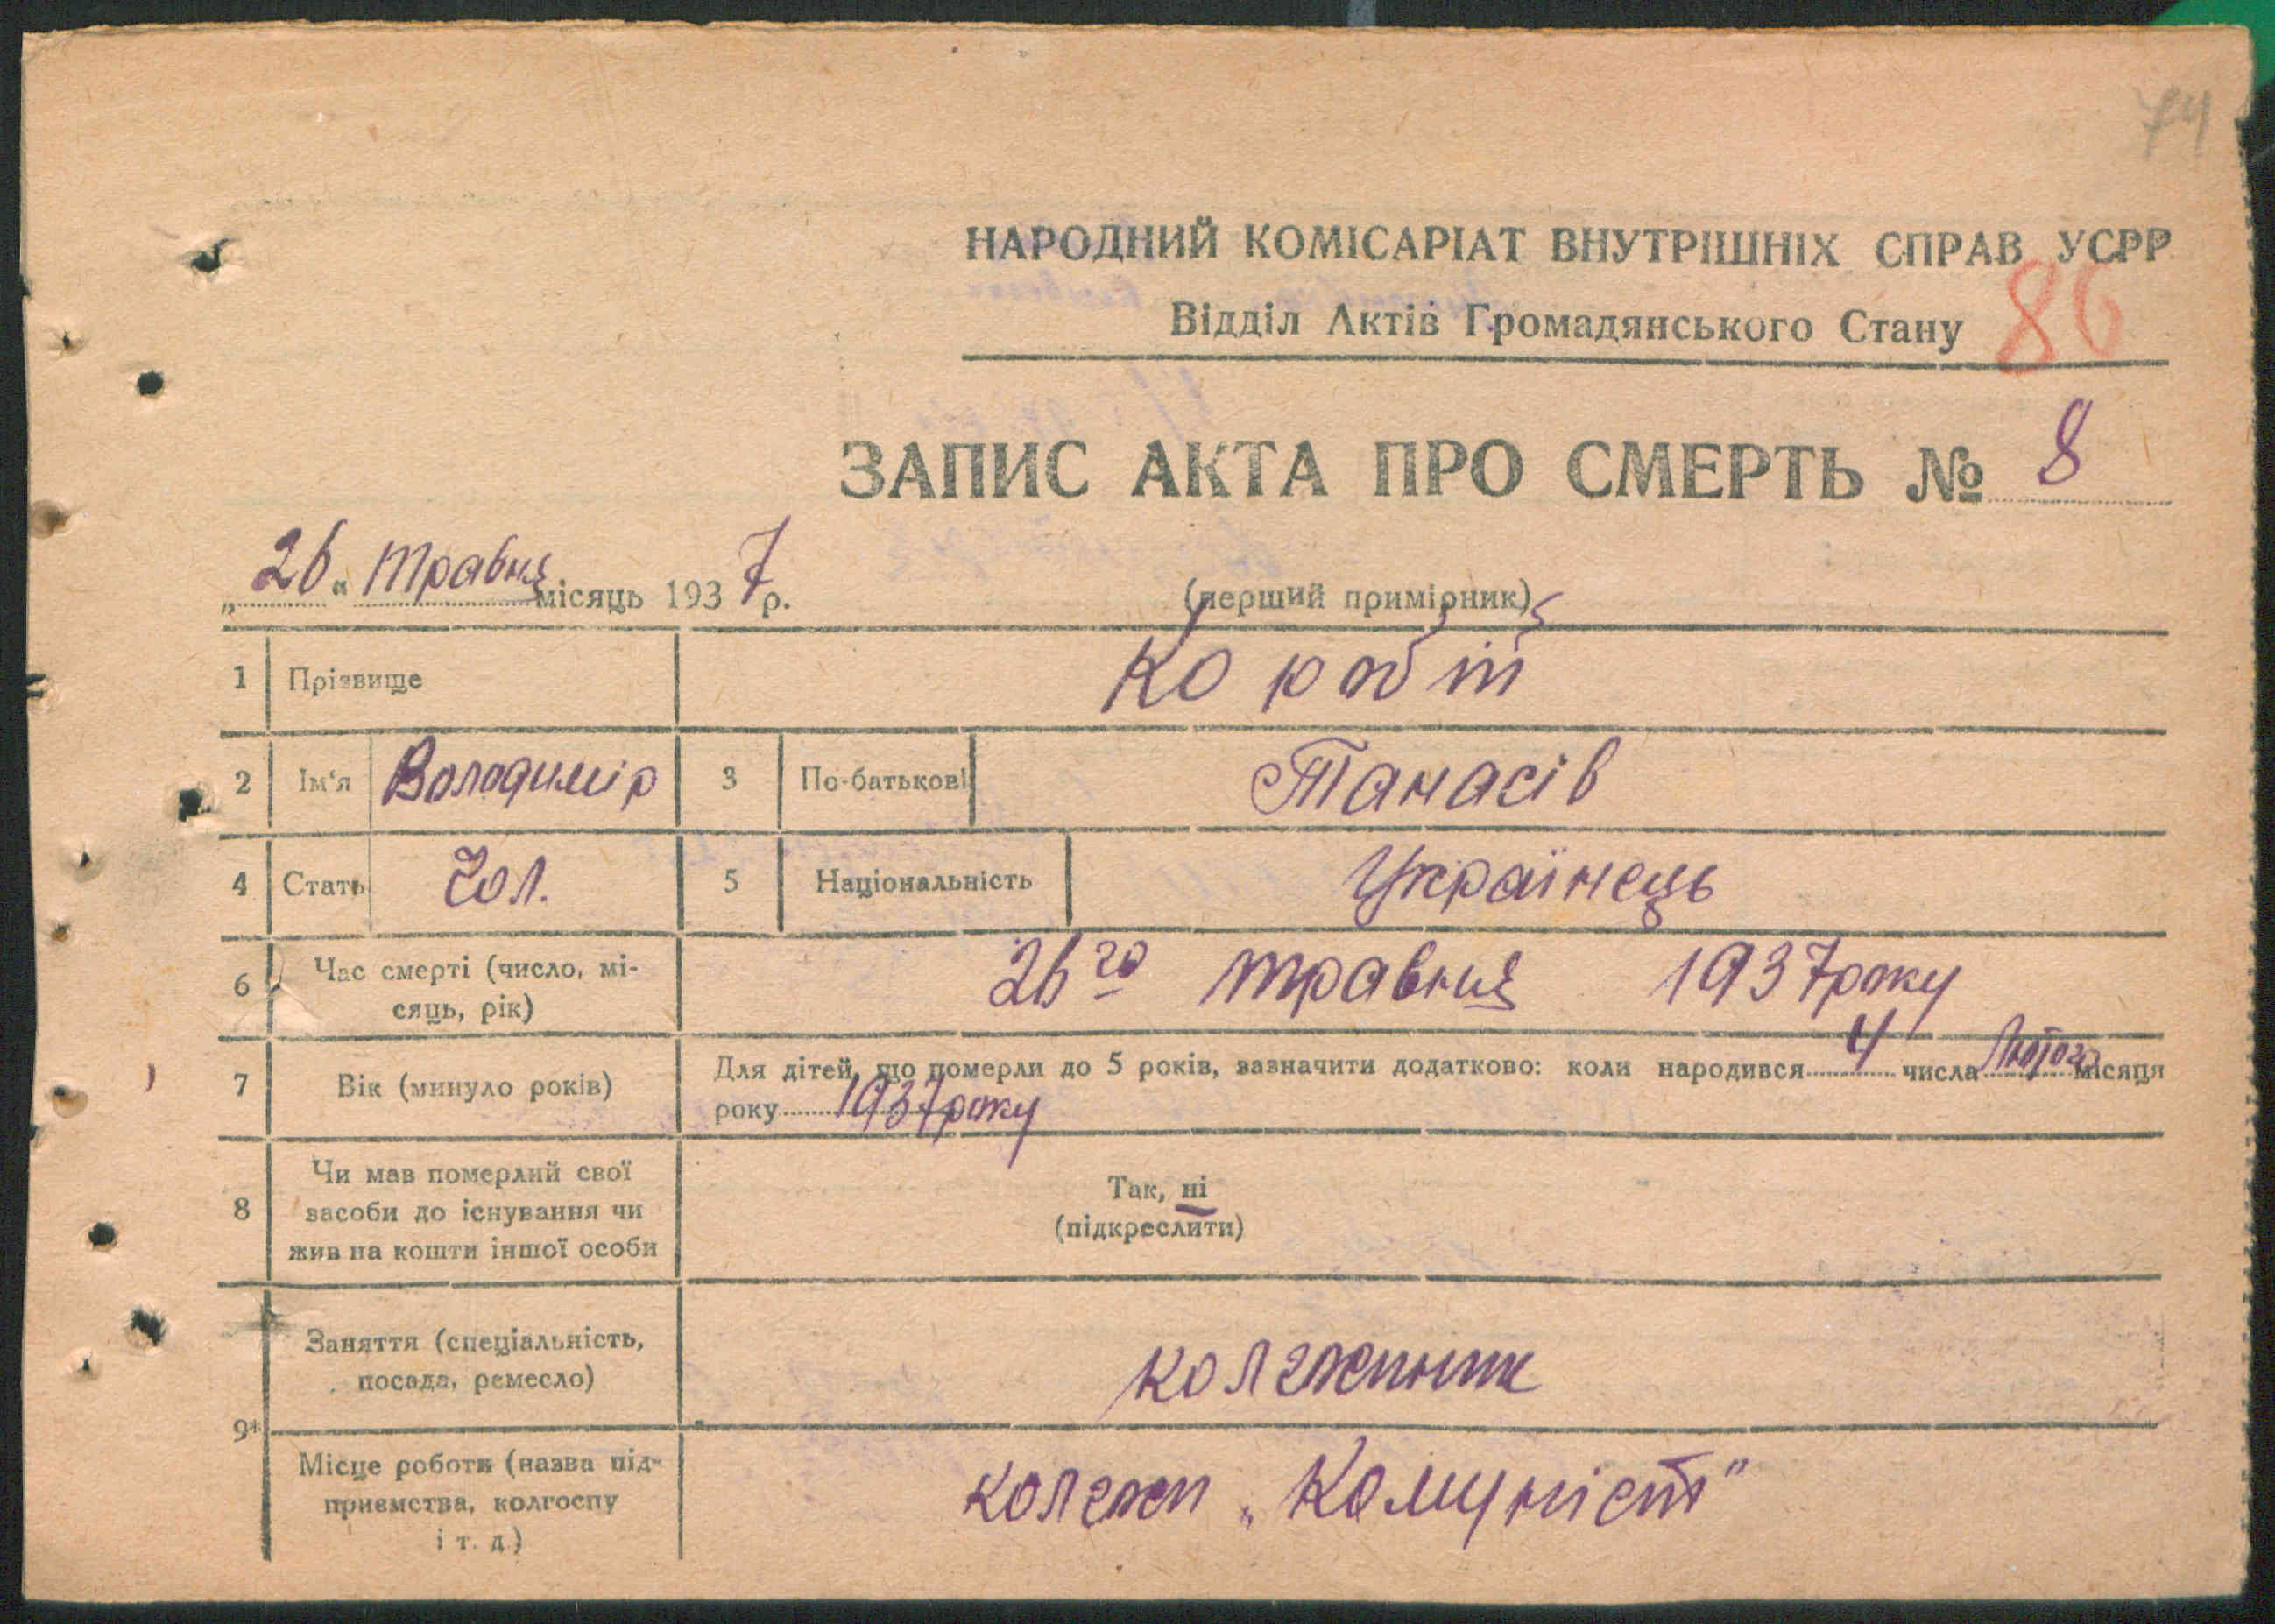 74
НАРОДНИЙ КОМІСАРІАТ ВНУТРІШНІХ СПРАВ УСРР
Відділ Актів Громадянського Стану
86
ЗАПИС АКТА ПРО СМЕРТЬ № 8
„26“ травня місяць 1937 р.
(перший примірник)
1 Прізвище
2 Ім'я Володимір 3 По-батькові Танасів
4 Стать Чол. 5 Національність Українець
6 Час смерті (число, мі-
сяць, рік) 26го травня 1937 року
7 Вік (минуло років) Для дітей, що померли до 5 років, зазначити додатково: коли народився 4 числа Лютого місяця
року 1937 року
8 Чи мав померлий свої
засоби до існування чи
жив на кошти іншої особи
Так, ні
(підкреслити)
9* Заняття (спеціальність,
посада, ремесло)
Місце роботи (назва під-
приємства, колгоспу
і т. д.)
„Комуніст"